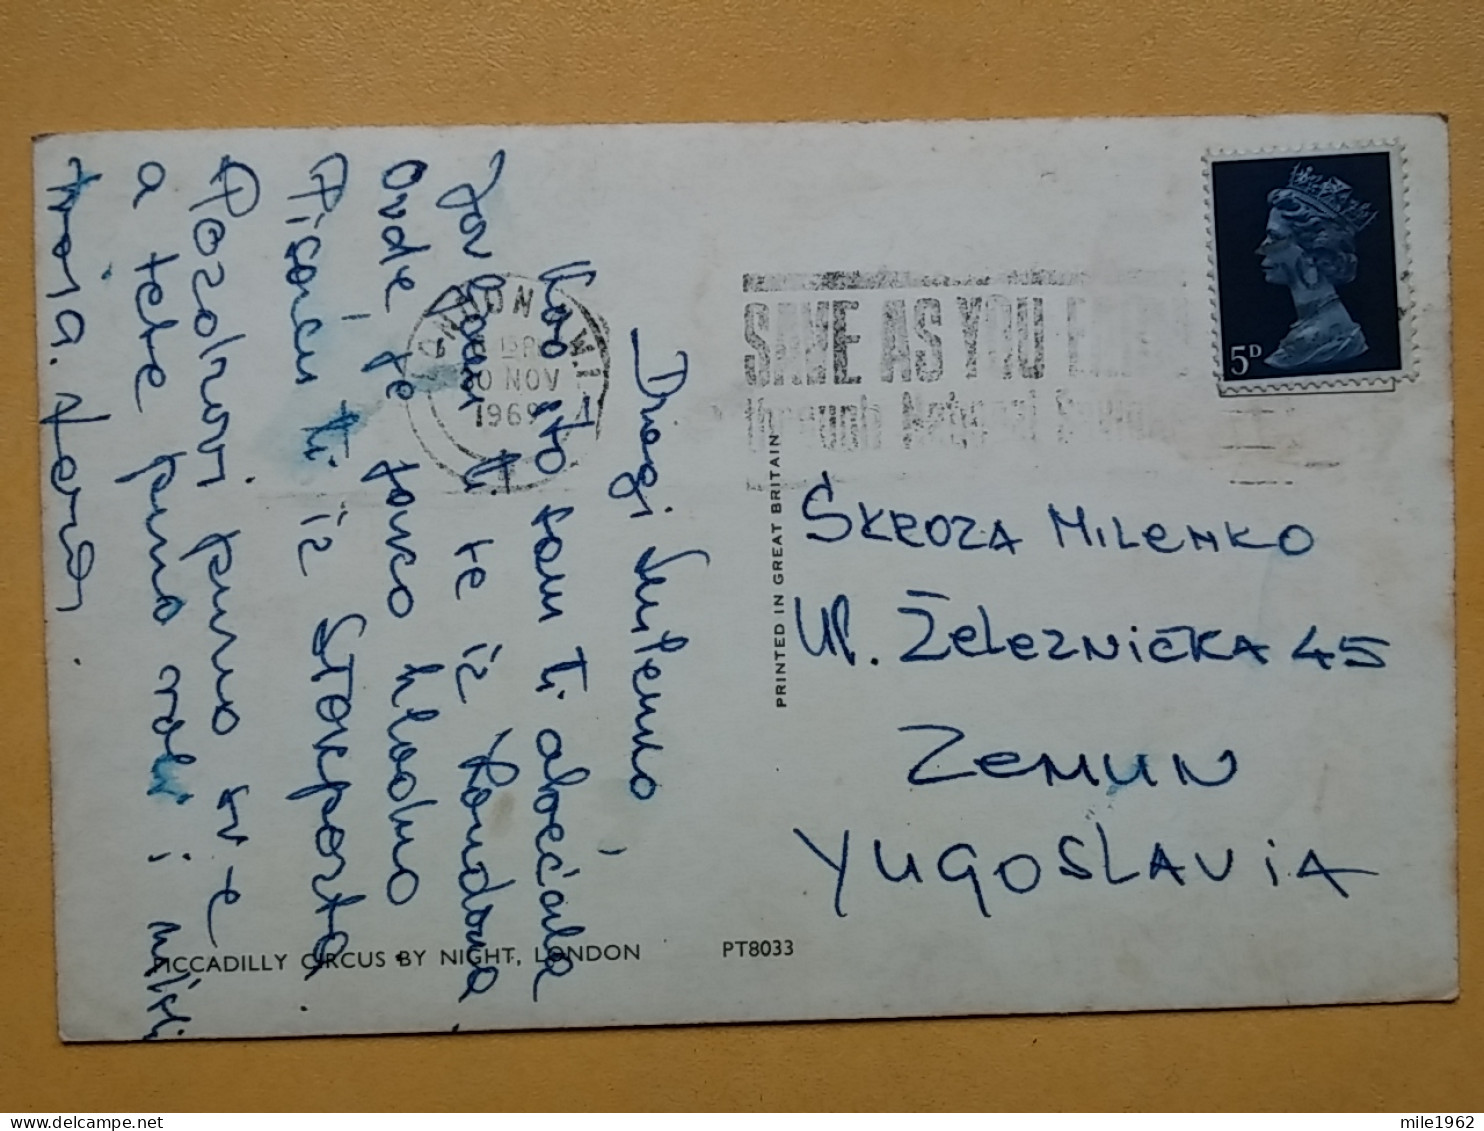 Dragi Milenko,
Kao što sam ti obećala
javljam ti se iz Londona
ovde je jako hladno
Pisaću ti iz Stokporta.
Pozdravi puno sve
a tebe puno voli i misli
tvoja
LONDON W.1
NOV
1969
SAVE AS YOU EARN
through National Savings
5D
PRINTED IN GREAT BRITAIN
ŠKROZA MILENKO
Ul. ŽELEZNIČKA 45
ZEMUN
YUGOSLAVIA
PICCADILLY CIRCUS BY NIGHT, LONDON
PT8033
mile1962